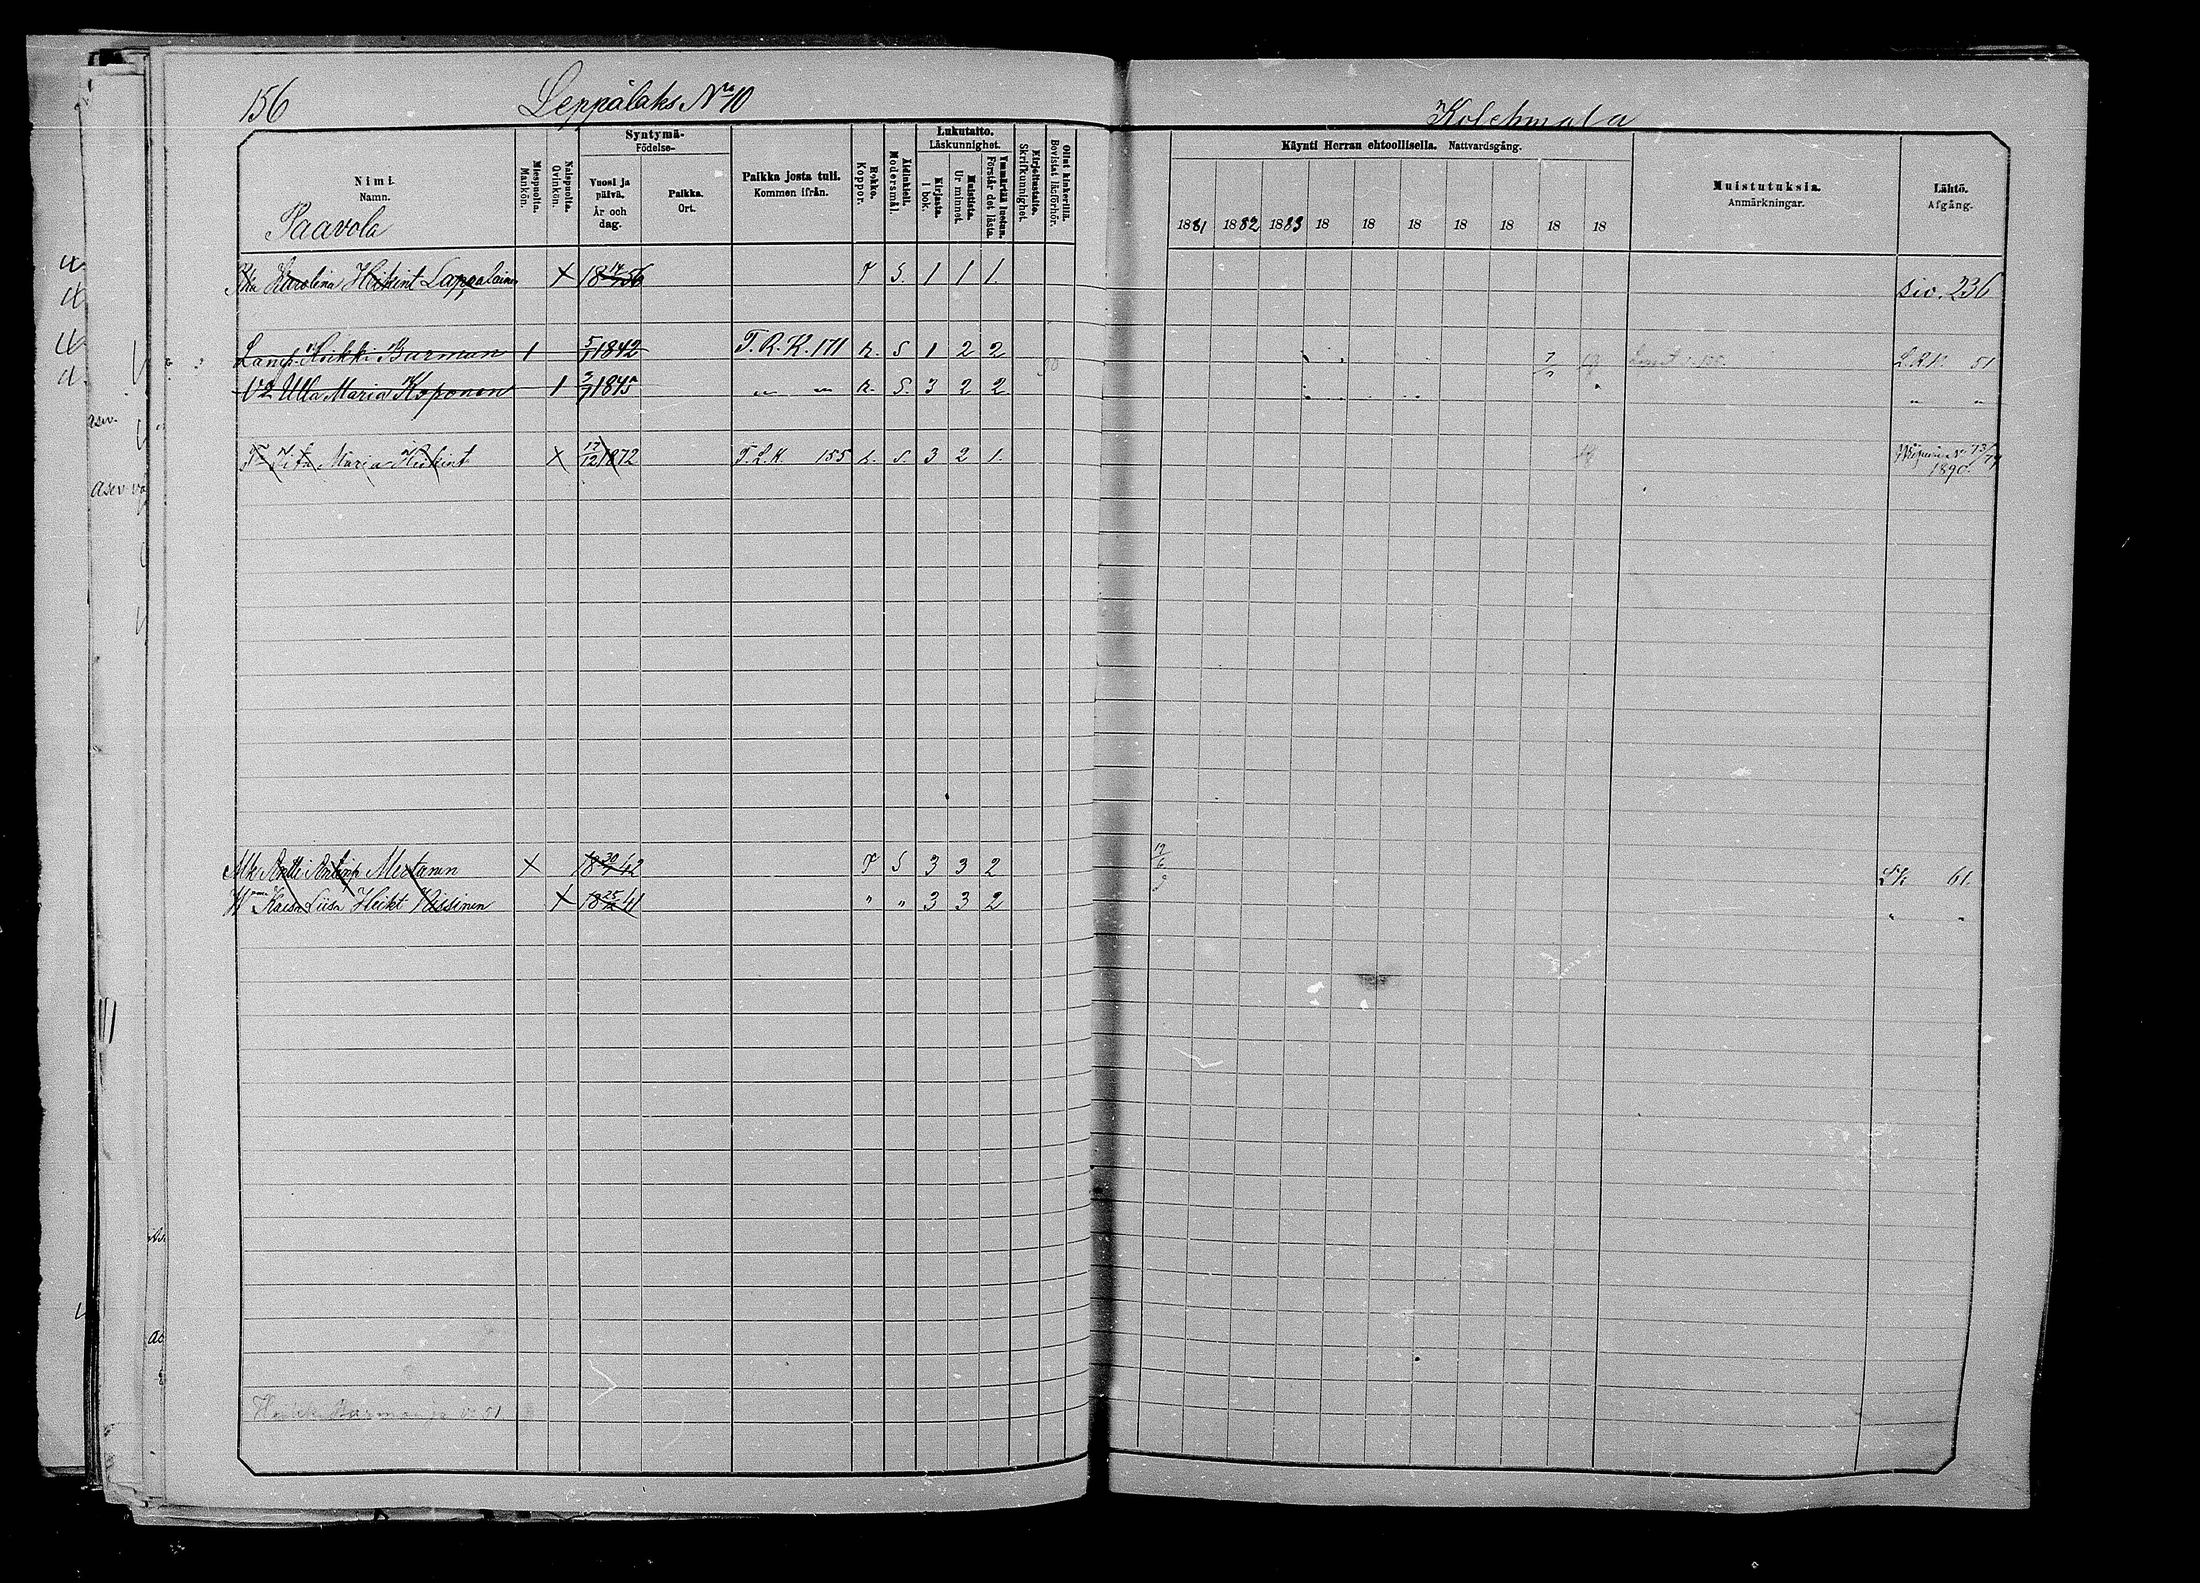 156 Leppälaks No 10 Kolehmala
Nimi. Namn. Miespuolia. Mankön. Naispuolia. Qvinkön. Syntymä- Födelse- Paikka josta tuli. Kommen ifrån. Rokko. Koppor. Äidinkieli. Modersmål. Lukutaito. Läskunnighet. Kirjoitustaito. Skrifkunnighet. Ollut kinkerillä. Bevistat läsförhör. Käynti Herran ehtoollisella. Nattvardsgång. Muistutuksia. Anmärkningar. Lähtö. Afgång.
Vuosi ja päivä. År och dag. Paikka. Ort. Kirjasta. I bok. Muistista. Ur minnet. Ymmärtää luetun. Förstår det lästa.
Paavola 1881 1882 1883 18 18 18 18 18 18 18
Karolina Heikint Lappalainen X 18 56 S. 1 1 1. siv. 236
Lamp. Heikki Burman 1 5/1 1842 T.R.K. 171 R. S 1 2 2 L.R.K. 51
V2 Ulla Maria Koponen 1 3/7 1845 " " R. S. 3 2 2 " "
Maria Heikint X 17/12 1872 T.L.K. 155 S. 3 2 1. 1890
Antti Mertanen X 18 30 42 S 3 3 2 19/6 Lk 61.
Kaisa Liisa Heikt Nissinen X 18 25 41 " " 3 3 2 " "
Heikki Burman ja V2 51